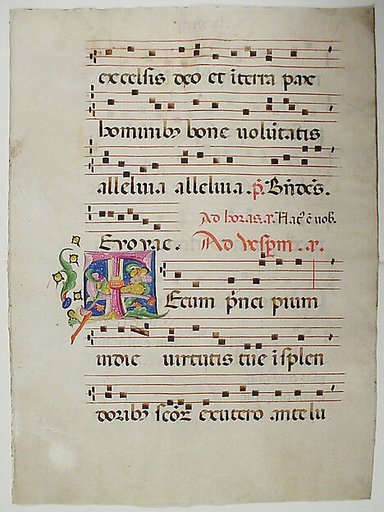 excelsis deo et i terra pax
hominibꝫ bone volũtatis
alleluia alleluia. p̃. Bñdcs̃.
Ad horas. a. Nat᷒ ẽ vob.
Evovae. Ad vesp̃m. a.
Tecum p̃nci pium
in die virtutis tue i splen
doribꝫ sco᷒ꝝ ex utero ante lu